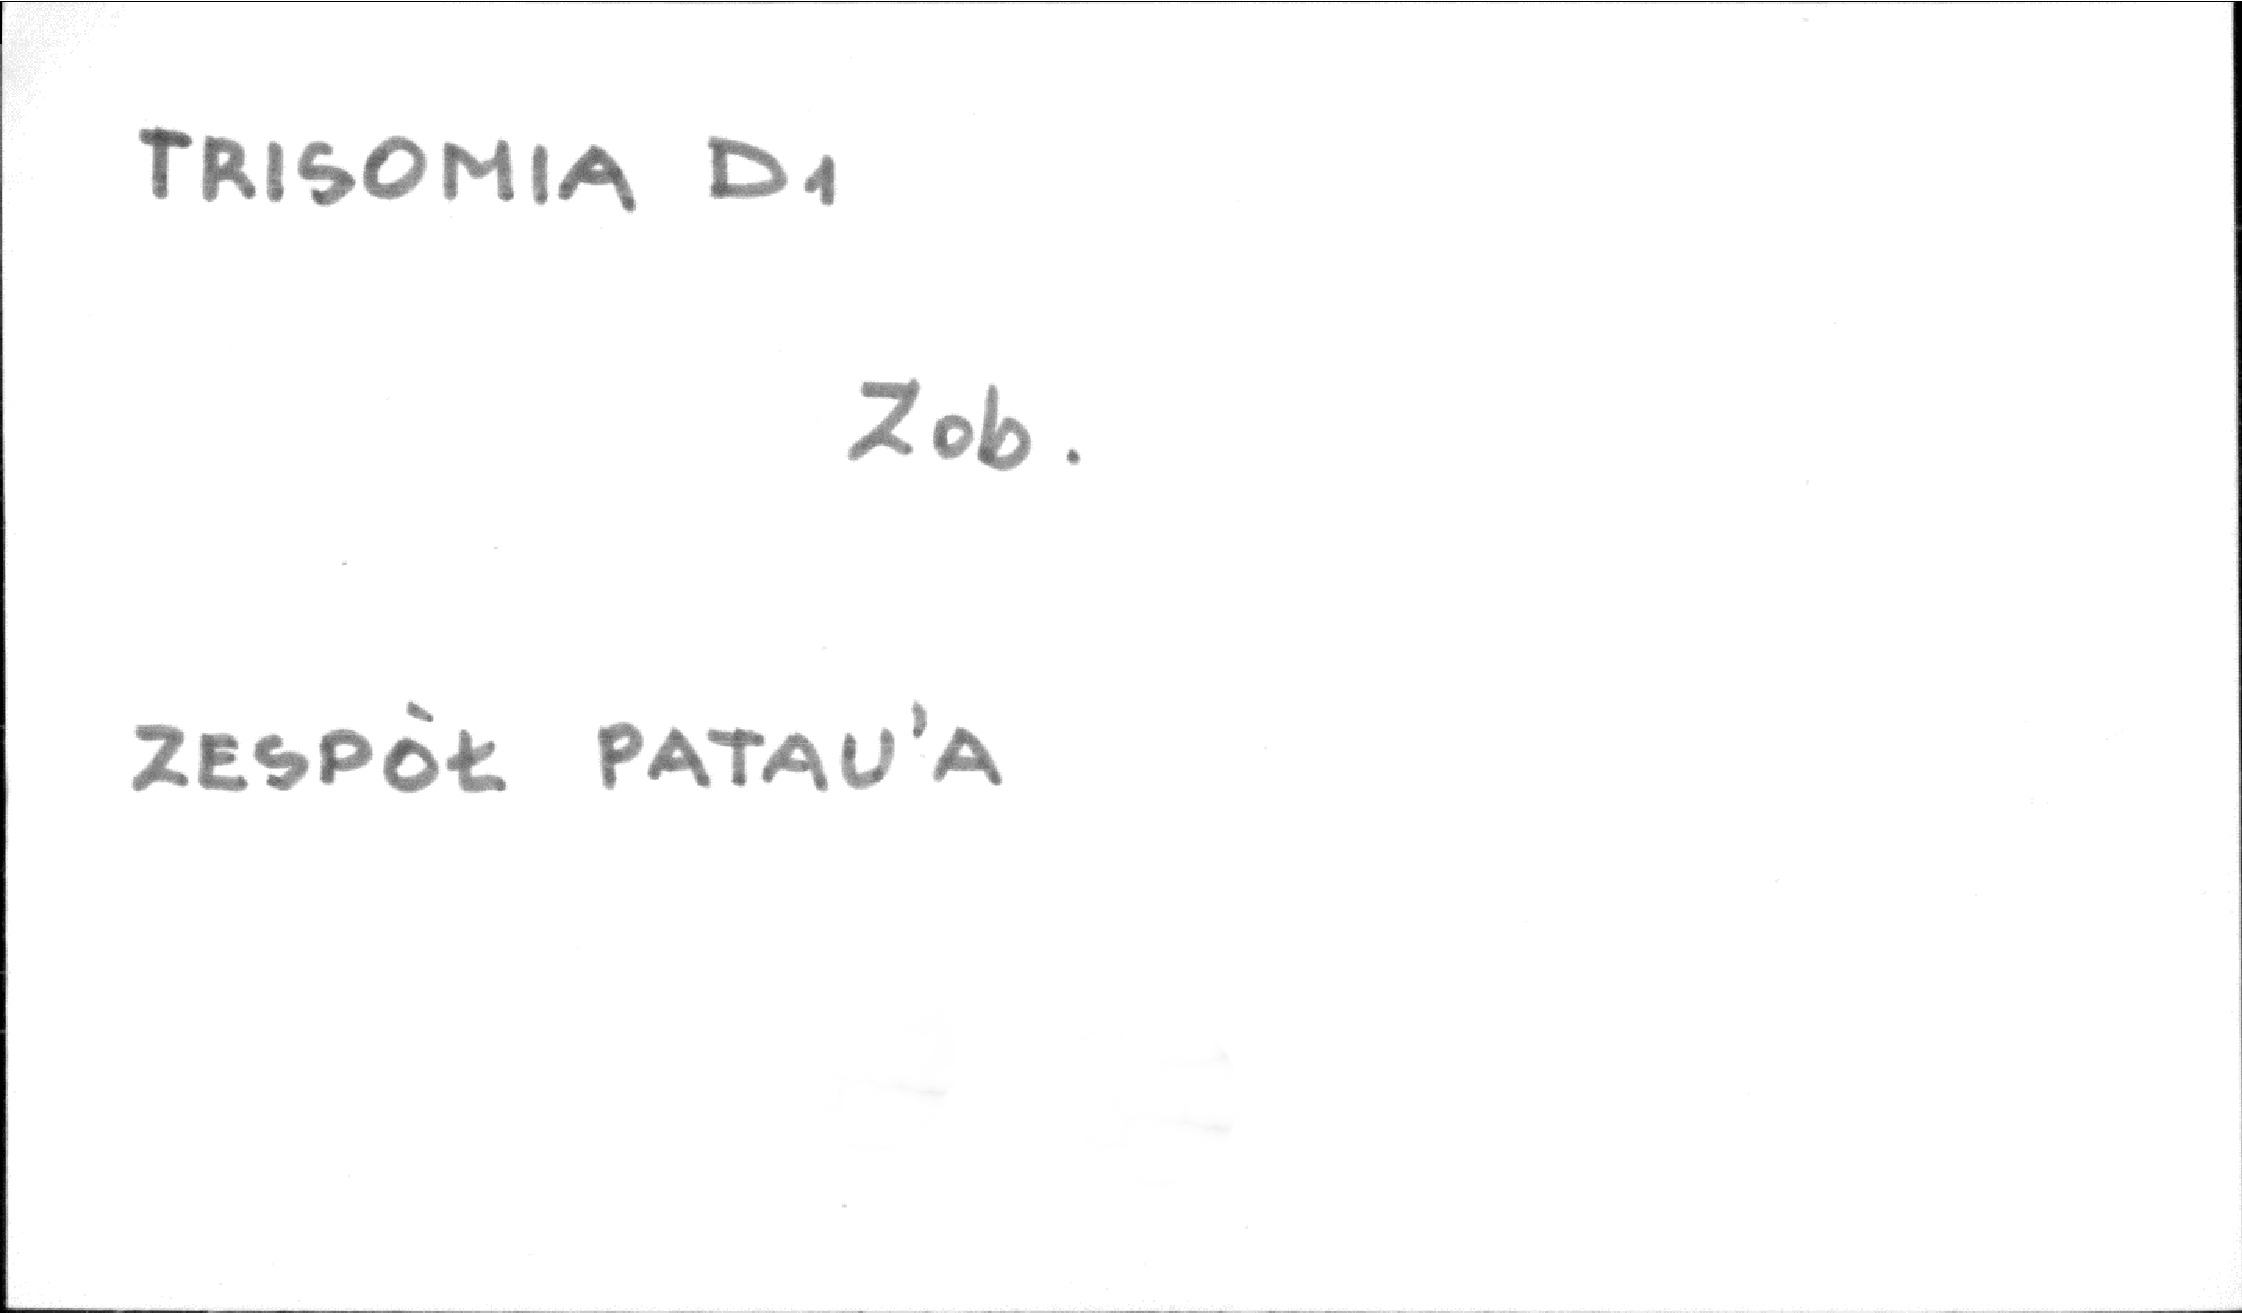 TRISOMIA D1
Zob.
ZESPÒŁ PATAU'A